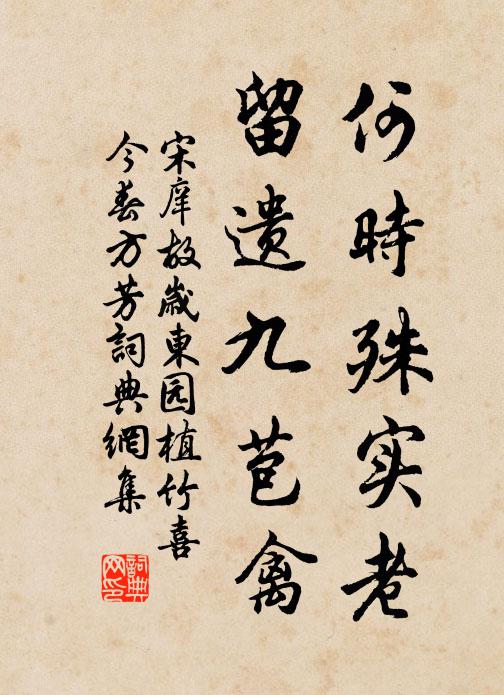 何時殊实老
留遗九苞禽
宋庠故歲東园植竹喜
今春方芳詞典網集
詞典
网印